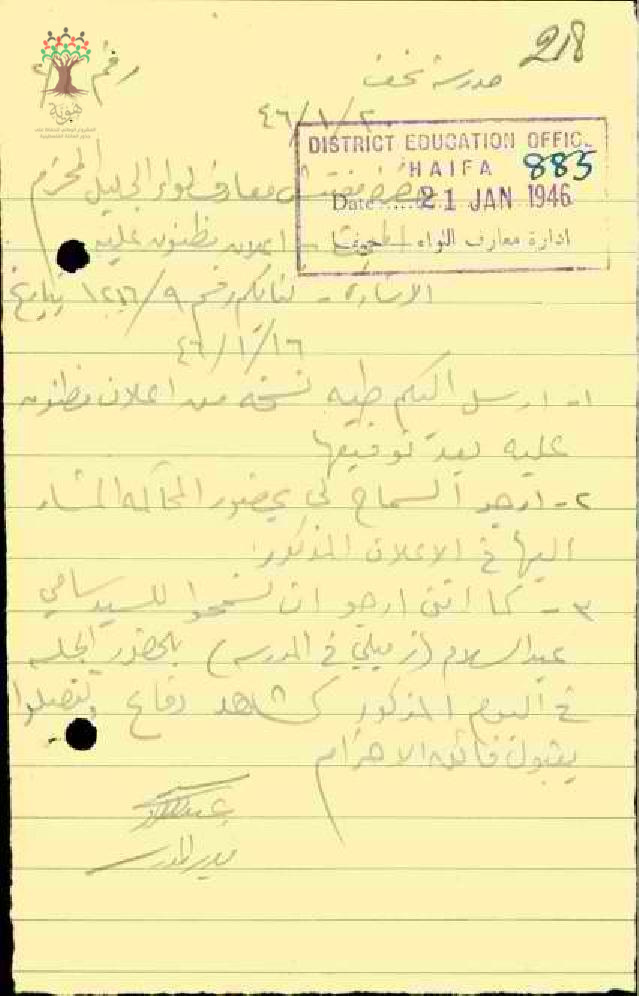 218
رقم
مدرسة نحف
٤٦/١/٢٠
DISTRICT EDUCATION OFFIC
HAIFA 885
Date 21 JAN 1946
ادارة معارف اللواء - حيفا
حضرة مفتش معارف لواء الجليل المحترم
اعلان مظنون عليه
الاشارة - كتابكم رقم ٩/ بتاريخ
٤٦/١/١٦
١- ارسل اليكم طيه نسخة من اعلان مظنون
عليه بعد توقيعها
٢- ارجو السماح لي بحضور المحاكمة المشار
اليها في الاعلان المذكور
٣- كما انني ارجو ان تسمحوا للسيد سامي
عبدالسلام (زميلي في المدرسه) بحضور الجلسه
في اليوم المذكور كشاهد دفاع وتفضلوا
بقبول فائق الاحترام
مدير المدرسه
هوية